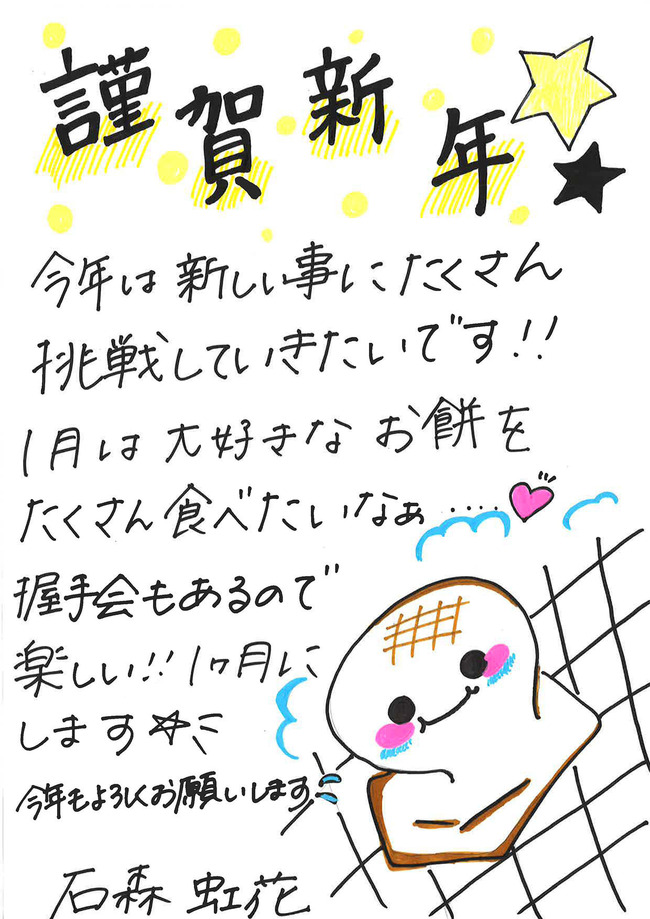 謹賀新年
今年は新しい事にたくさん
挑戦していきたいです!!
1月は大好きなお餅を
たくさん食べたいなぁ····
握手会もあるので
楽しい!!1ヶ月に
します☆ミ
今年もよろしくお願いします
石森虹花